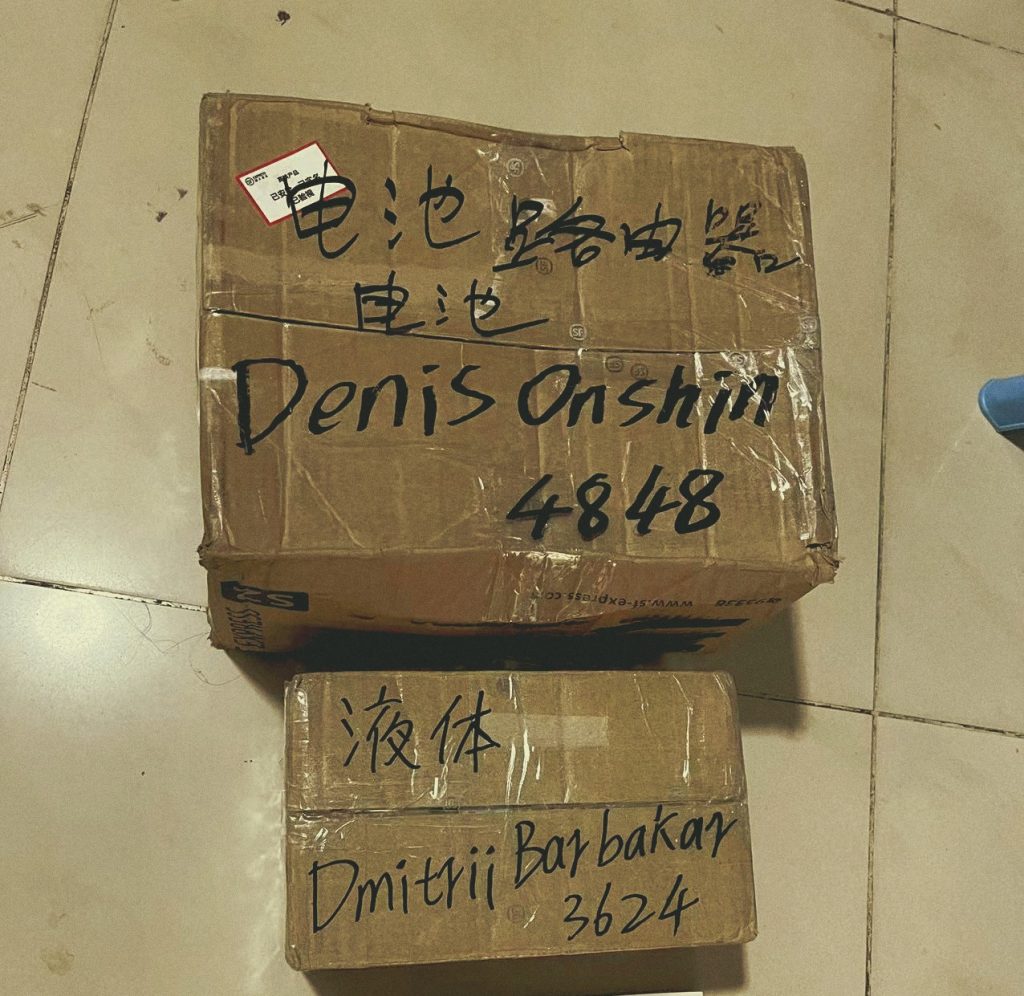 电池 路由器
电池
Denis Onshin
4848
SF
EXPRESS
www.sf-express.com
液体
Dmitrii Barbakar
3624